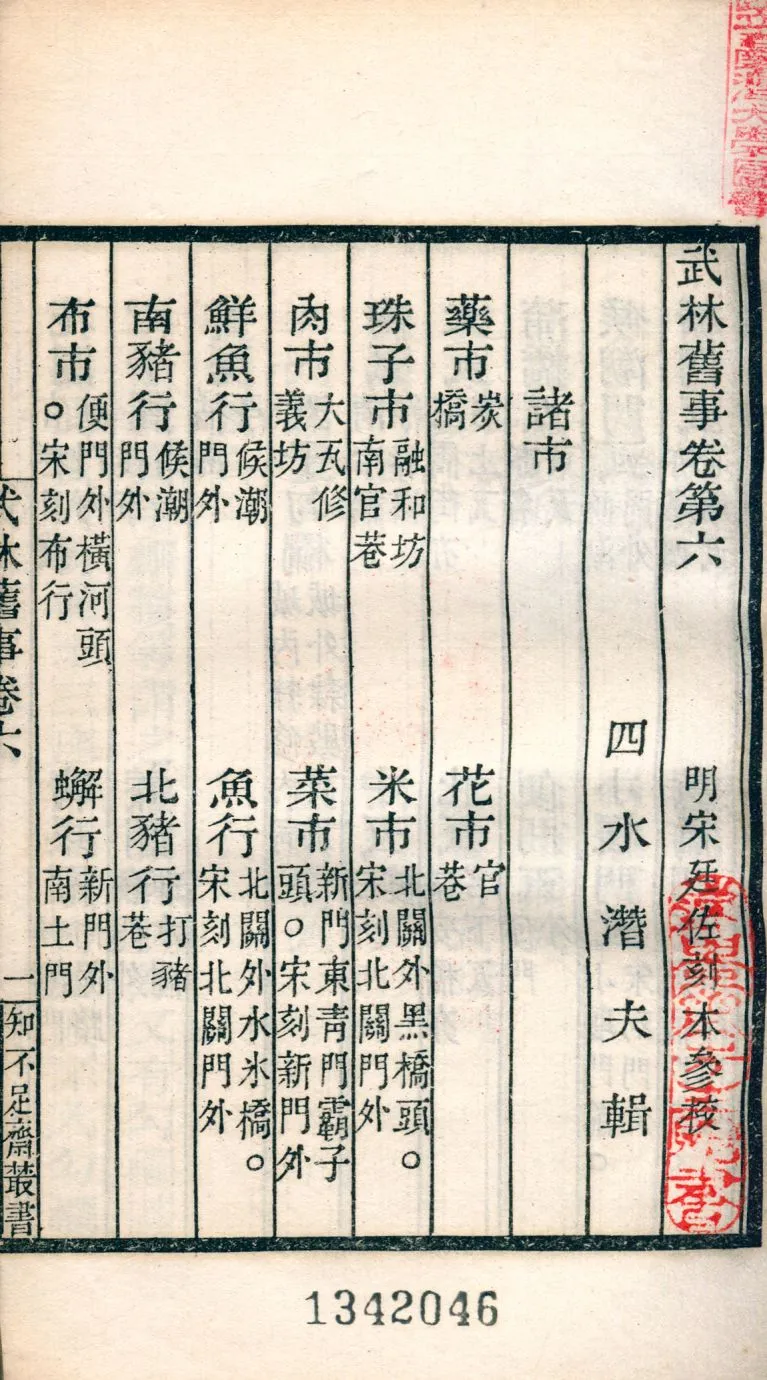 武林舊事卷第六　明宋廷佐刻本參校
四水潛夫輯
諸市
藥市炭橋　花市官巷
珠子市融和坊南官巷　米市北關外黑橋頭。宋刻北關門外
肉市大瓦修義坊　菜市新門東青門霸子頭。宋刻新門外
鮮魚行候潮門外　魚行北關外水氷橋。宋刻北關門外
南豬行候潮門外　北豬行打豬巷
布市便門外橫河頭。宋刻布行　蠏行新門外南土門
武林舊事卷六　一　知不足齋叢書
1342046